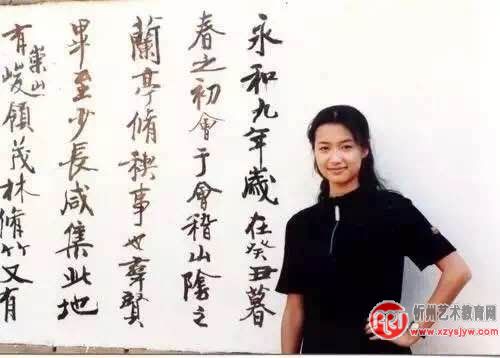 永和九年歲在癸丑暮
春之初會于會稽山陰之
蘭亭脩稧事也羣賢
畢至少長咸集此地
有崇山峻領茂林脩竹又有
ART
忻州艺术教育网
www.xzysjyw.com